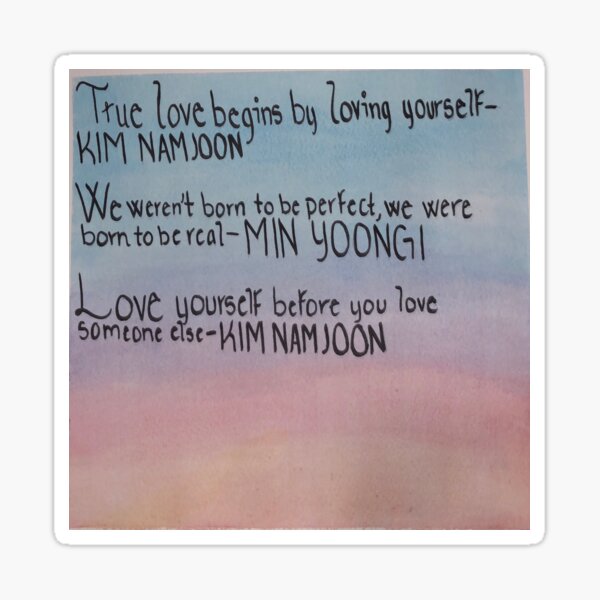 True love begins by loving yourself-
KIM NAMJOON
We weren't born to be perfect, we were
born to be real-MIN YOONGI
Love yourself before you love
someone else-KIM NAMJOON